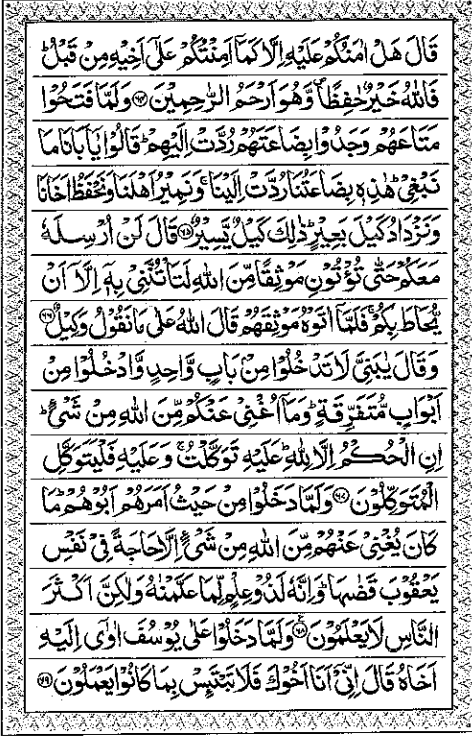 قَالَ هَلْ اٰمَنُكُمْ عَلَيْهِ اِلَّا كَمَاۤ اَمِنْتُكُمْ عَلٰۤى اَخِيْهِ مِنْ قَبْلُ ؕ
فَاللّٰهُ خَيْرٌ حٰفِظًا ۪ وَّهُوَ اَرْحَمُ الرّٰحِمِيْنَ ﴿۶۴﴾ وَلَمَّا فَتَحُوْا
مَتَاعَهُمْ وَجَدُوْا بِضَاعَتَهُمْ رُدَّتْ اِلَيْهِمْ ؕ قَالُوْا يٰۤاَبَانَا مَا
نَبْغِيْ ؕ هٰذِهٖ بِضَاعَتُنَا رُدَّتْ اِلَيْنَا ۚ وَنَمِيْرُ اَهْلَنَا وَنَحْفَظُ اَخَانَا
وَنَزْدَادُ كَيْلَ بَعِيْرٍ ؕ ذٰلِكَ كَيْلٌ يَّسِيْرٌ ﴿۶۵﴾ قَالَ لَنْ اُرْسِلَهٗ
مَعَكُمْ حَتّٰى تُؤْتُوْنِ مَوْثِقًا مِّنَ اللّٰهِ لَتَاْتُنَّنِيْ بِهٖۤ اِلَّاۤ اَنْ
يُّحَاطَ بِكُمْ ۚ فَلَمَّاۤ اٰتَوْهُ مَوْثِقَهُمْ قَالَ اللّٰهُ عَلٰى مَا نَقُوْلُ وَكِيْلٌ ﴿۶۶﴾
وَقَالَ يٰبَنِيَّ لَا تَدْخُلُوْا مِنْۢ بَابٍ وَّاحِدٍ وَّادْخُلُوْا مِنْ
اَبْوَابٍ مُّتَفَرِّقَةٍ ؕ وَمَاۤ اُغْنِيْ عَنْكُمْ مِّنَ اللّٰهِ مِنْ شَيْءٍ ؕ
اِنِ الْحُكْمُ اِلَّا لِلّٰهِ ؕ عَلَيْهِ تَوَكَّلْتُ ۚ وَعَلَيْهِ فَلْيَتَوَكَّلِ
الْمُتَوَكِّلُوْنَ ﴿۶۷﴾ وَلَمَّا دَخَلُوْا مِنْ حَيْثُ اَمَرَهُمْ اَبُوْهُمْ ؕ مَا
كَانَ يُغْنِيْ عَنْهُمْ مِّنَ اللّٰهِ مِنْ شَيْءٍ اِلَّا حَاجَةً فِيْ نَفْسِ
يَعْقُوْبَ قَضٰىهَا ؕ وَاِنَّهٗ لَذُوْ عِلْمٍ لِّمَا عَلَّمْنٰهُ وَلٰكِنَّ اَكْثَرَ
النَّاسِ لَا يَعْلَمُوْنَ ﴿۶۸﴾ وَلَمَّا دَخَلُوْا عَلٰى يُوْسُفَ اٰوٰۤى اِلَيْهِ
اَخَاهُ قَالَ اِنِّيْۤ اَنَا اَخُوْكَ فَلَا تَبْتَئِسْ بِمَا كَانُوْا يَعْمَلُوْنَ ﴿۶۹﴾